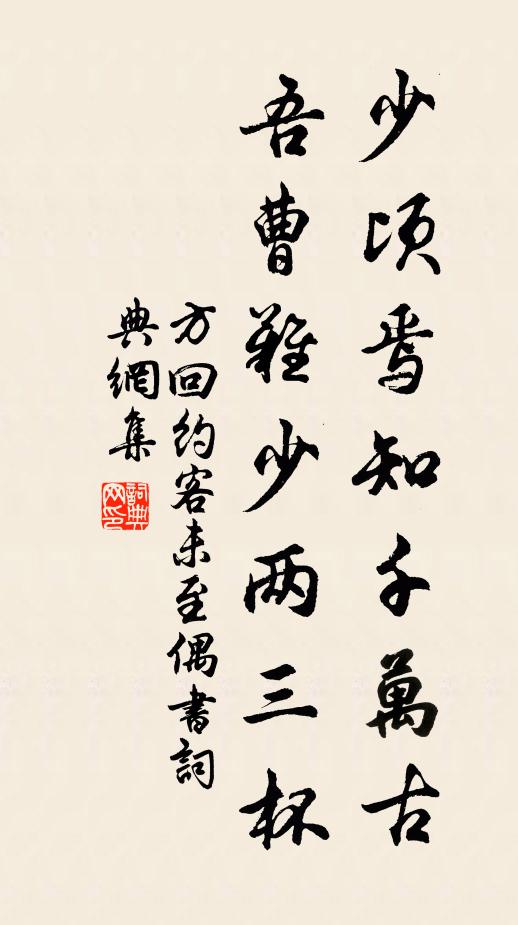 少頃焉知千萬古
吾曹難少两三杯
方回約客未至偶書詞
典網集
詞典
网印